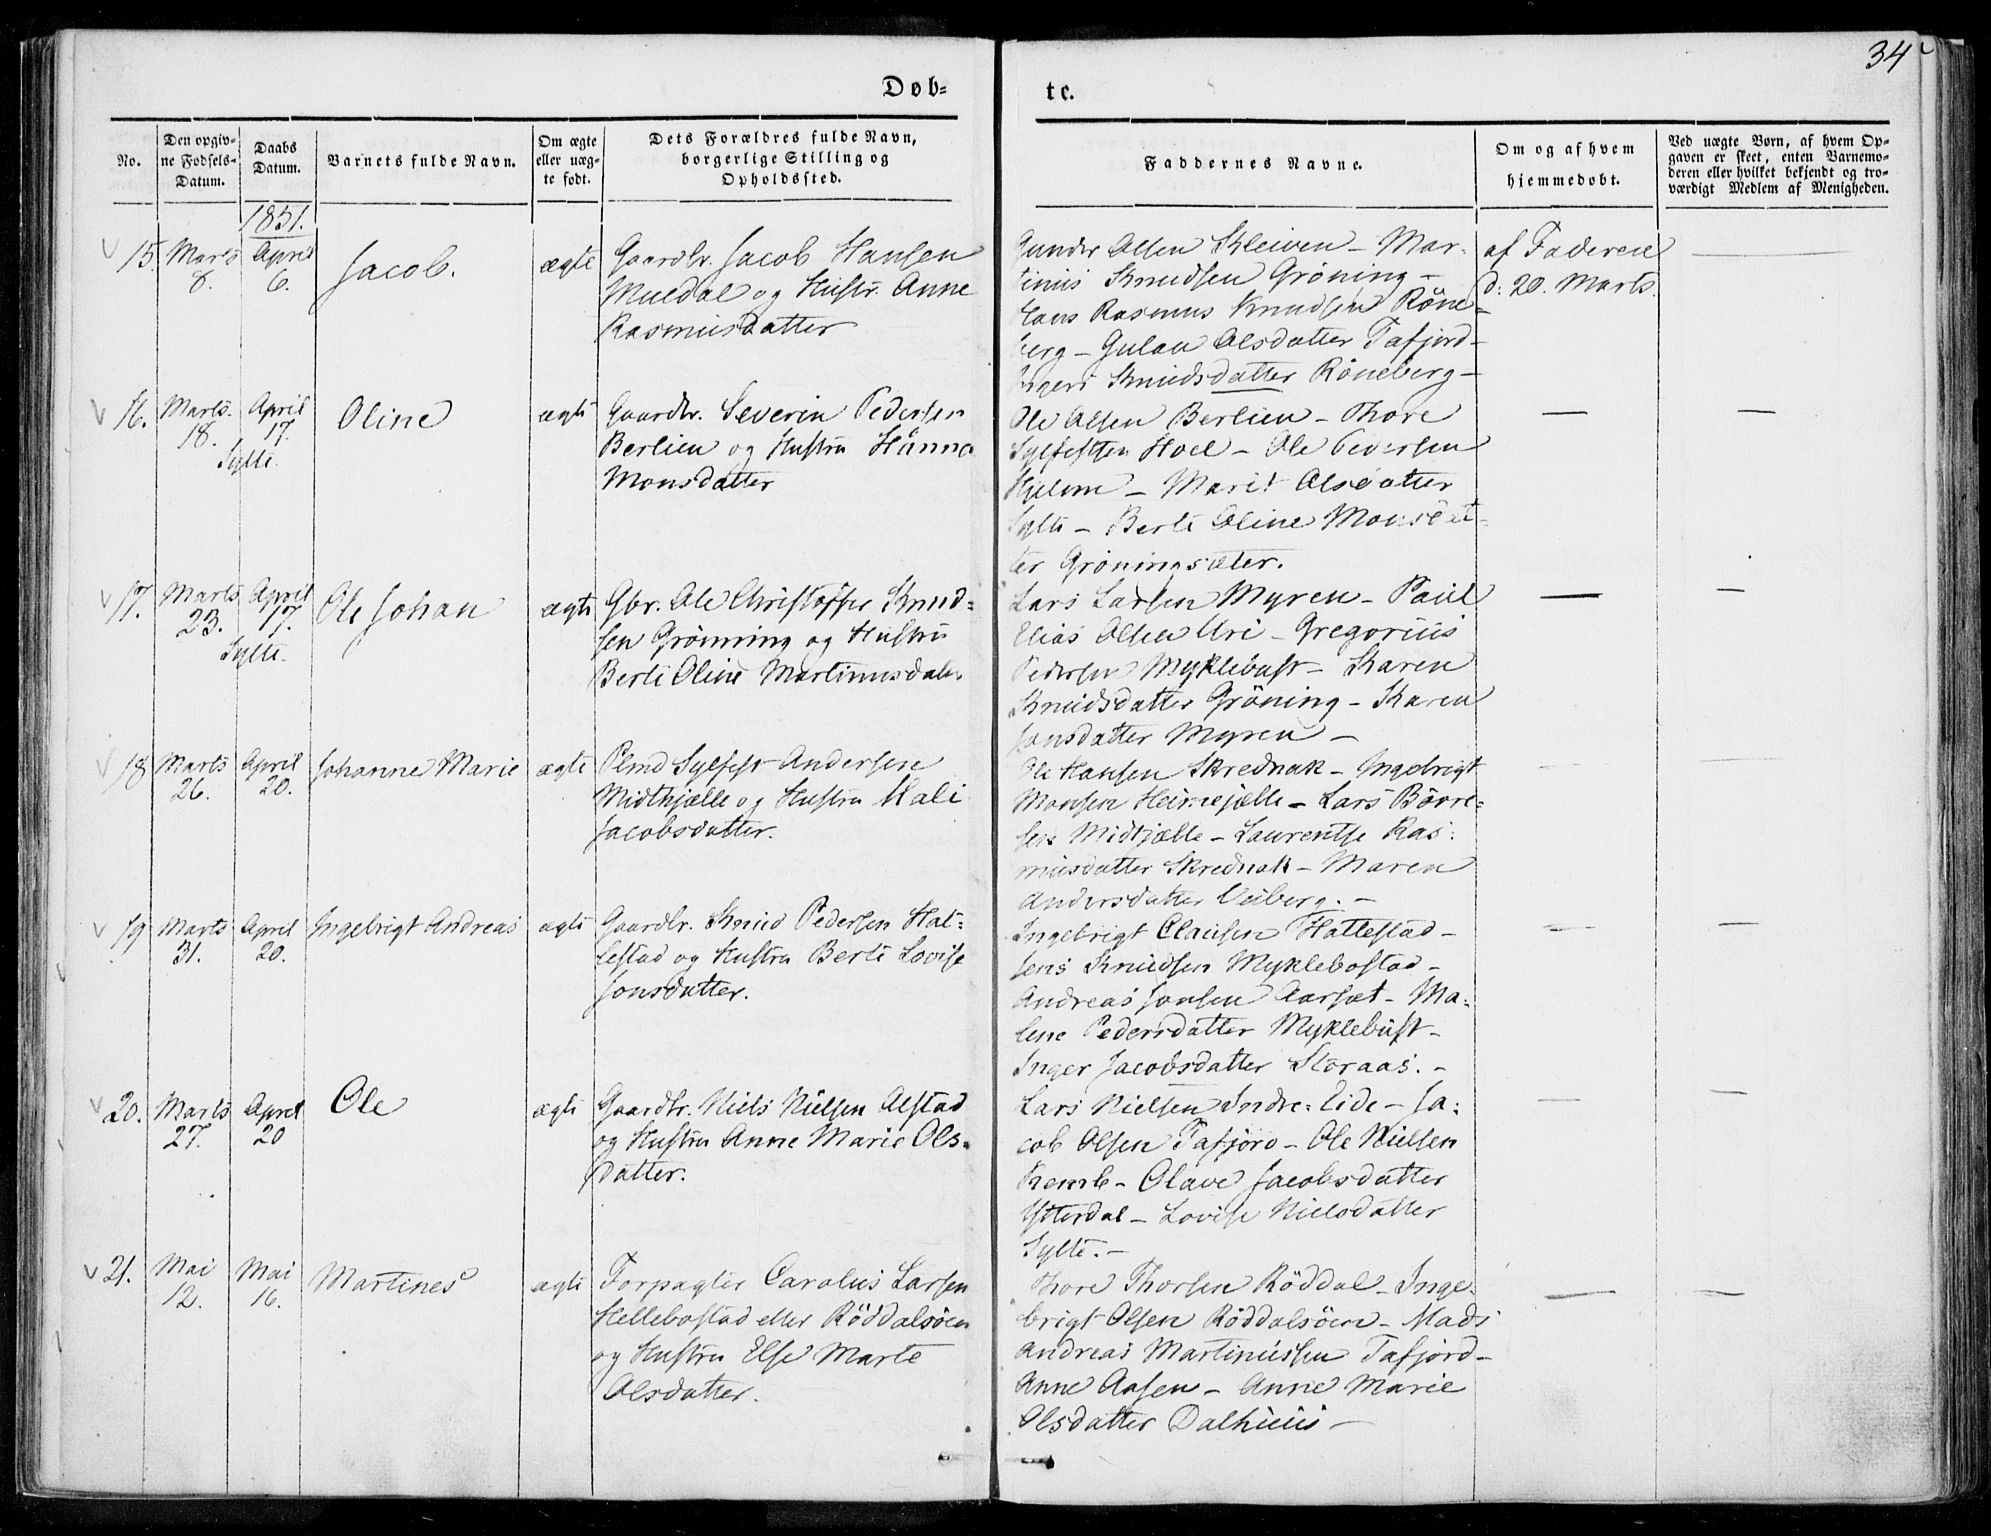 34
Døb=
te.
No.
Den opgiv=
ne Fødsels=
Datum.
Daabs
Datum.
Barnets fulde Navn.
Om ægte
eller uæg=
te født.
Dets Forældres fulde Navn,
borgerlige Stilling og
Opholdssted.
Faddernes Navne.
Om og af hvem
hjemmedøbt.
Ved uægte Børn, af hvem Op=
gaven er skeet, enten Barnemo=
deren eller hvilket bekjendt og tro=
værdigt Medlem af Menigheden.
1851.
15. Marts
8.
April
6.
Jacob.
ægte
Gaardbr. Jacob Hansen
Muldal og Hustr. Anne
Rasmusdatter
Gunder Olsen Kleiven - Mar-
tinus Knudsen Gröning -
Rasmus Knudsen Röne-
berg - Gulau Olsdatter Tafjord -
Knudsdatter Röneberg -
af Faderen
d. 20. Marts.
16. Marts
18.
April
17.
Sylte.
Oline
ægte
Gaardbr. Severin Pedersen
Berlien og Hustru Hanna
Monsdatter
Ole Olsen Berlien - Thore
Sylfestsen Hoel - Ole Pedersen
Hjelme - Marit Olsdatter
Sylte - Berte Oline Monsdat=
ter Gröningsæter.
17. Marts
23.
April
17.
Sylte.
Ole Johan
ægte
Gbr. Ole Christoffer Knud=
sen Grönning og Hustru
Berte Oline Martinusdatr.
Lars Larsen Myren - Paul
Elias Olsen Uri - Gregorius
Pedersen Myklebust - Karen
Knudsdatter Gröning - Karen
Jonsdatter Myren -
18 Marts
26.
April
20.
Johanne Marie
ægte
Plmd Sylfest Andersen
Midthjælle og Hustru Kali
Jacobsdatter.
Ole Hansen Skrednak - Ingebrigt
Monsen Heimejælle - Lars Börre=
sen Midtjælle - Laurentse Ras=
musdatter Skrednak - Maren
Andersdatter Veiberg. -
19 Marts
31.
April
20.
Ingebrigt Andreas
ægte
Gaardbr. Knud Pedersen Hat=
lestad og Hustru Berte Lovise
Jonsdatter.
Ingebrigt Clausen Hattestad -
Jens Knudsen Myklebostad -
Andreas Jonsen Aarsæt - Ma=
lene Pedersdatter Myklebust -
Inger Jacobsdatter Storaas. -
20. Marts
27.
April
20
Ole
ægte
Gaardbr. Niels Nielsen Alstad
og Hustru Anne Marie Ols=
datter.
Lars Nielsen Indre=Eide - Ja=
cob Olsen Tafjord - Ole Nielsen
- Olave Jacobsdatter
Ytterdal - Lovise Nielsdatter
Sylte. -
21. Mai
12.
Mai
16.
Martines
ægte
Forpagter Carolus Larsen
Hellebostad eller Röddalsöen
og Hustru Else Marte
Olsdatter.
Thore Thorsen Röddal - Inge=
brigt Olsen Röddalsöen - Mads
Andreas Martinussen Tafjord -
Anne Aasen - Anne Marie
Olsdatter Dalhuus -